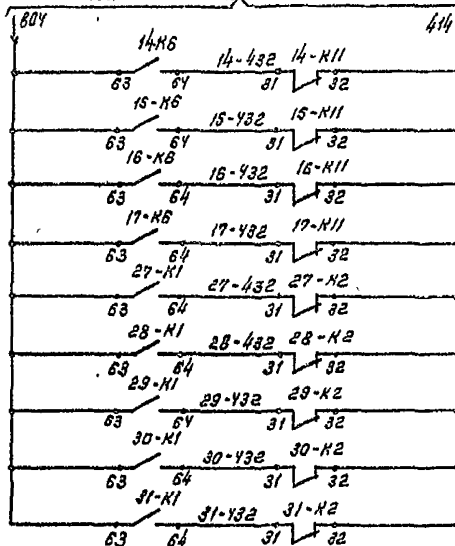 804 414
14К6 14-432 14-К11
63 64 31 32
15-К6 15-432 15-К11
63 64 31 32
16-К6 16-432 16-К11
63 64 31 32
17-К6 17-432 17-К11
63 64 31 32
27-К1 27-432 27-К2
63 64 31 32
28-К1 28-432 28-К2
63 64 31 32
29-К1 29-432 29-К2
63 64 31 32
30-К1 30-432 30-К2
63 64 31 32
31-К1 31-432 31-К2
63 64 31 32